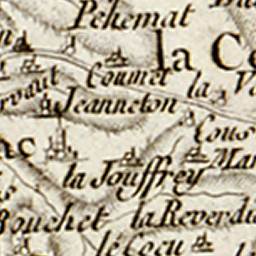 Pehemat
la
Coumet
la
Jeanneton
Cous
la Jouffrey
Bouchet
la Reverdi
le Cocu